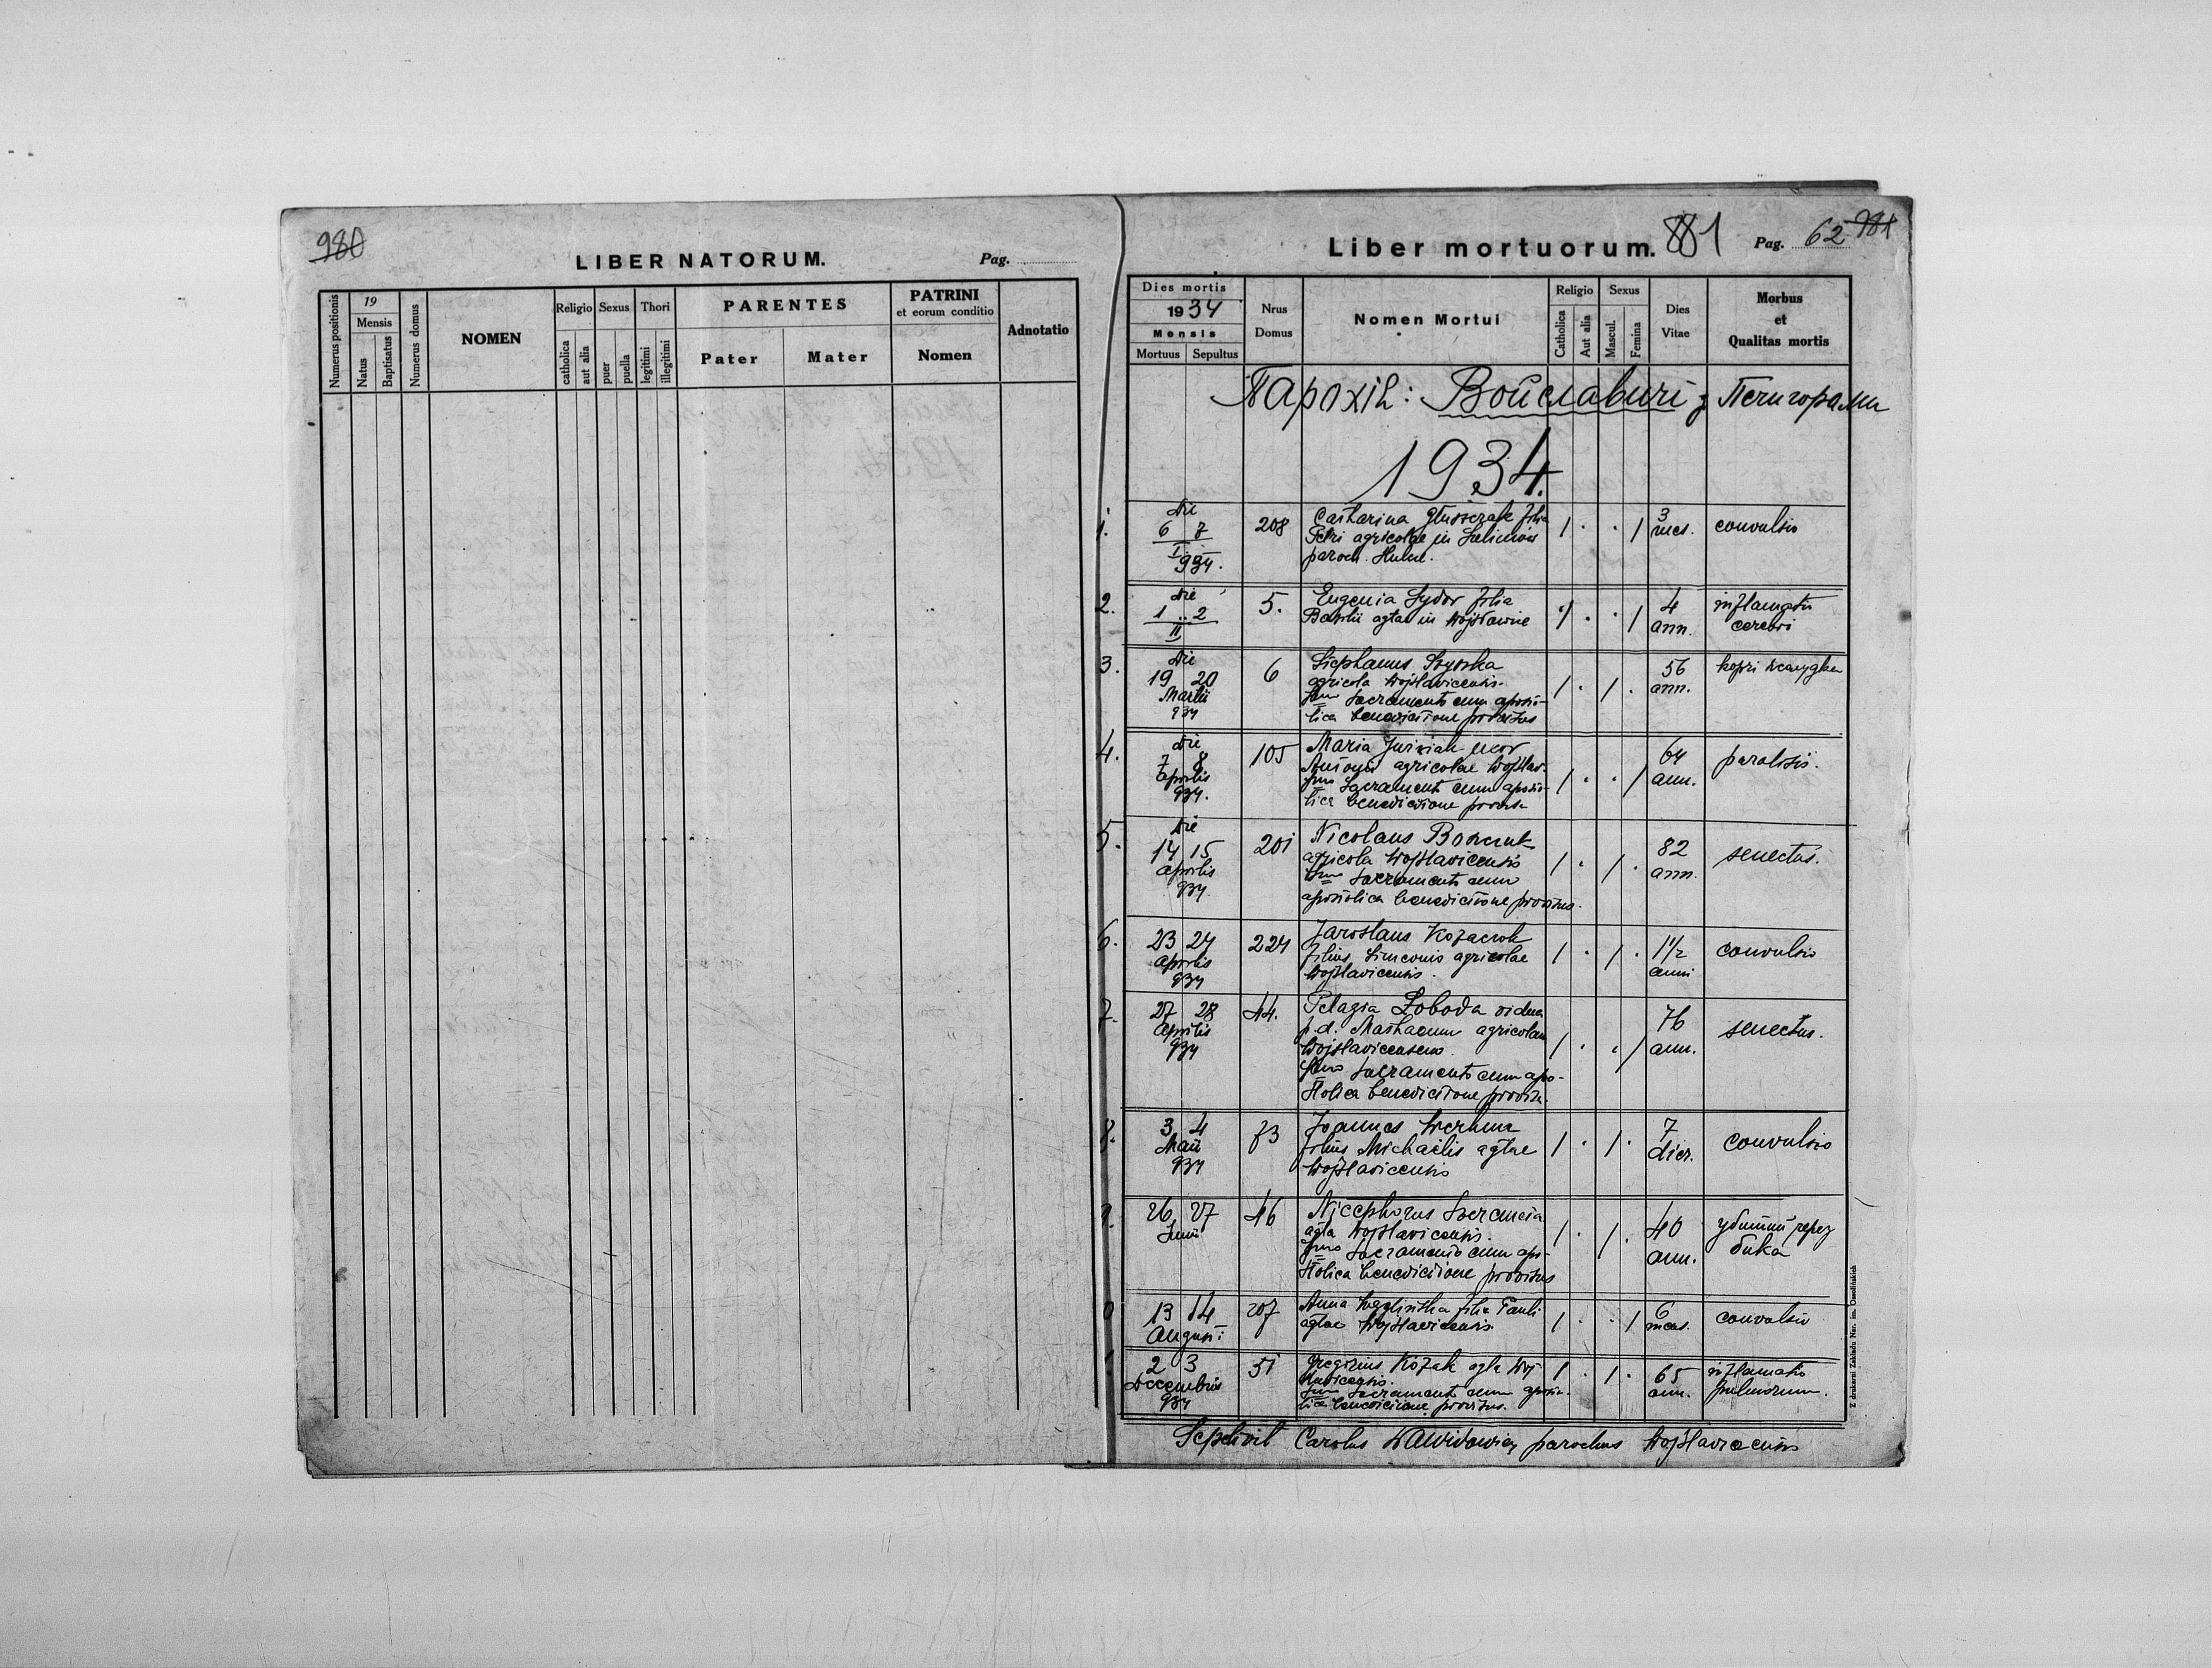 980
LIBER NATORUM.
Pag.
Numerus positionis
19
Mensis
Natus
Baptisatus
Numerus domus
NOMEN
Religio
catholica
aut alia
Sexus
puer
puella
Thori
legitimi
illegitimi
PARENTES
Pater
Mater
PATRINI
et eorum conditio
Nomen
Adnotatio
Liber mortuorum.
881
Pag. 62
981
Dies mortis
1934
Mensis
Mortuus
Sepultus
Nrus
Domus
Nomen Mortui
Religio
Catholica
Aut alia
Sexus
Mascul.
Femina
Dies
Vitae
Morbus
et
Qualitas mortis
Парохія: Войславичі з Печигорами
1934.
1.
die
6 7
I
934.
208
Catharina filia
Petri agricolae in
paroch.
/ . . /
3
mes.
convulsio
2.
die
1 2
II
5.
Eugenia Sydor filia
Basilii agtae in
/ . . /
4
ann.
inflamatio
cerebri
3.
die
19 20
Martii
934
6
Stephanus
agricola Wojslavicensis.
Sacramentis cum aposto-
lica benedictione provisus
/ . / .
56
ann.
4.
die
7 8
Aprilis
934.
105
Maria uxor
Antonii agricolae Wojslav.
Sacramentis cum aposto-
lica benedictione provisa
/ . . /
64
ann.
paralisis.
5.
die
14 15
Aprilis
934.
201
Nicolaus
agricola Wojslavicensis
Sacramentis cum
apostolica benedictione provisus.
/ . / .
82
ann.
senectus.
6.
23 24
Aprilis
934
224
Jaroslaus
filius Simeonis agricolae
Wojslavicensis.
/ . / .
1 1/2
anni
convulsio
7.
27 28
Aprilis
934
44.
Pelagia Łoboda vidua
p. d. Mathaeum agricolam
Wojslavicensem.
Sacramentis cum apo-
stolica benedictione provisa.
/ . . /
76
ann.
senectus.
8.
3 4
Maii
934
73
Joannes
filius Michaelis agtae
Wojslavicensis
/ . / .
7
dier.
convulsio
9.
26 27
Junii
46
Nicephorus
agta Wojslavicensis.
Sacramentis cum apo-
stolica benedictione provisus
/ . / .
40
ann.
убитий через
бика
0
13 14
Augusti
207
Anna filia Pauli
agtae Wojslavicensis.
/ . . /
6
mens.
convulsio
2 3
Decembris
934
51
Gregorius Kozak agta Woj-
slavicensis.
Sacramentis cum aposto-
lica benedictione provisus.
/ . / .
65
ann.
inflamatio
pulmonum.
Sepelivit Carolus parochus Wojslavicensis
Z drukarni Zakładu Nar. im. Ossolińskich